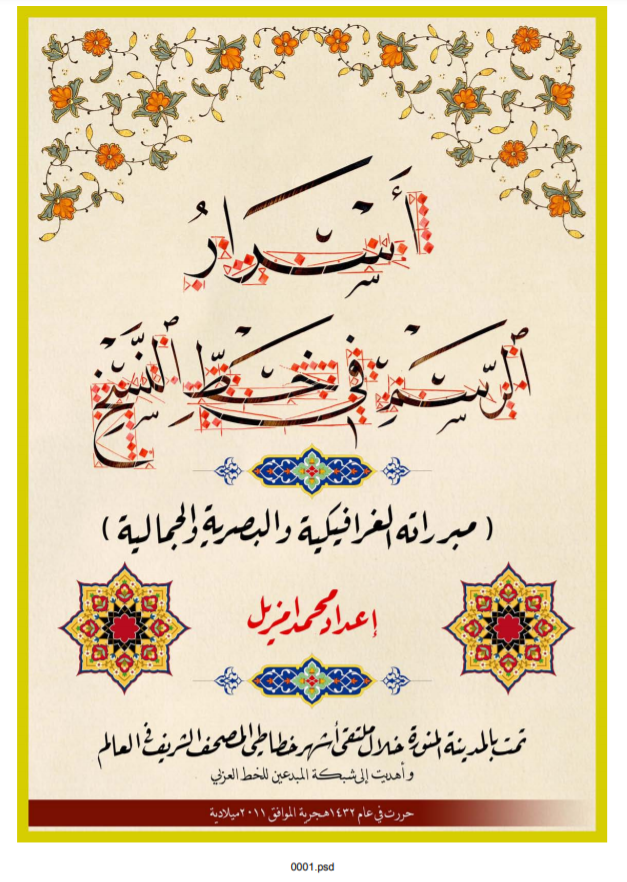 أسرار
الرسم في خط النسخ
( مبرراته الغرافيكية والبصرية والجمالية )
إعداد محمد امزيل
تمت بالمدينة المنورة خلال ملتقى أشهر خطاطي المصحف الشريف في العالم
وأهديت إلى شبكة المبدعين للخط العربي
حررت في عام ١٤٣٢ هجرية الموافق ٢٠١١ ميلادية
0001.psd